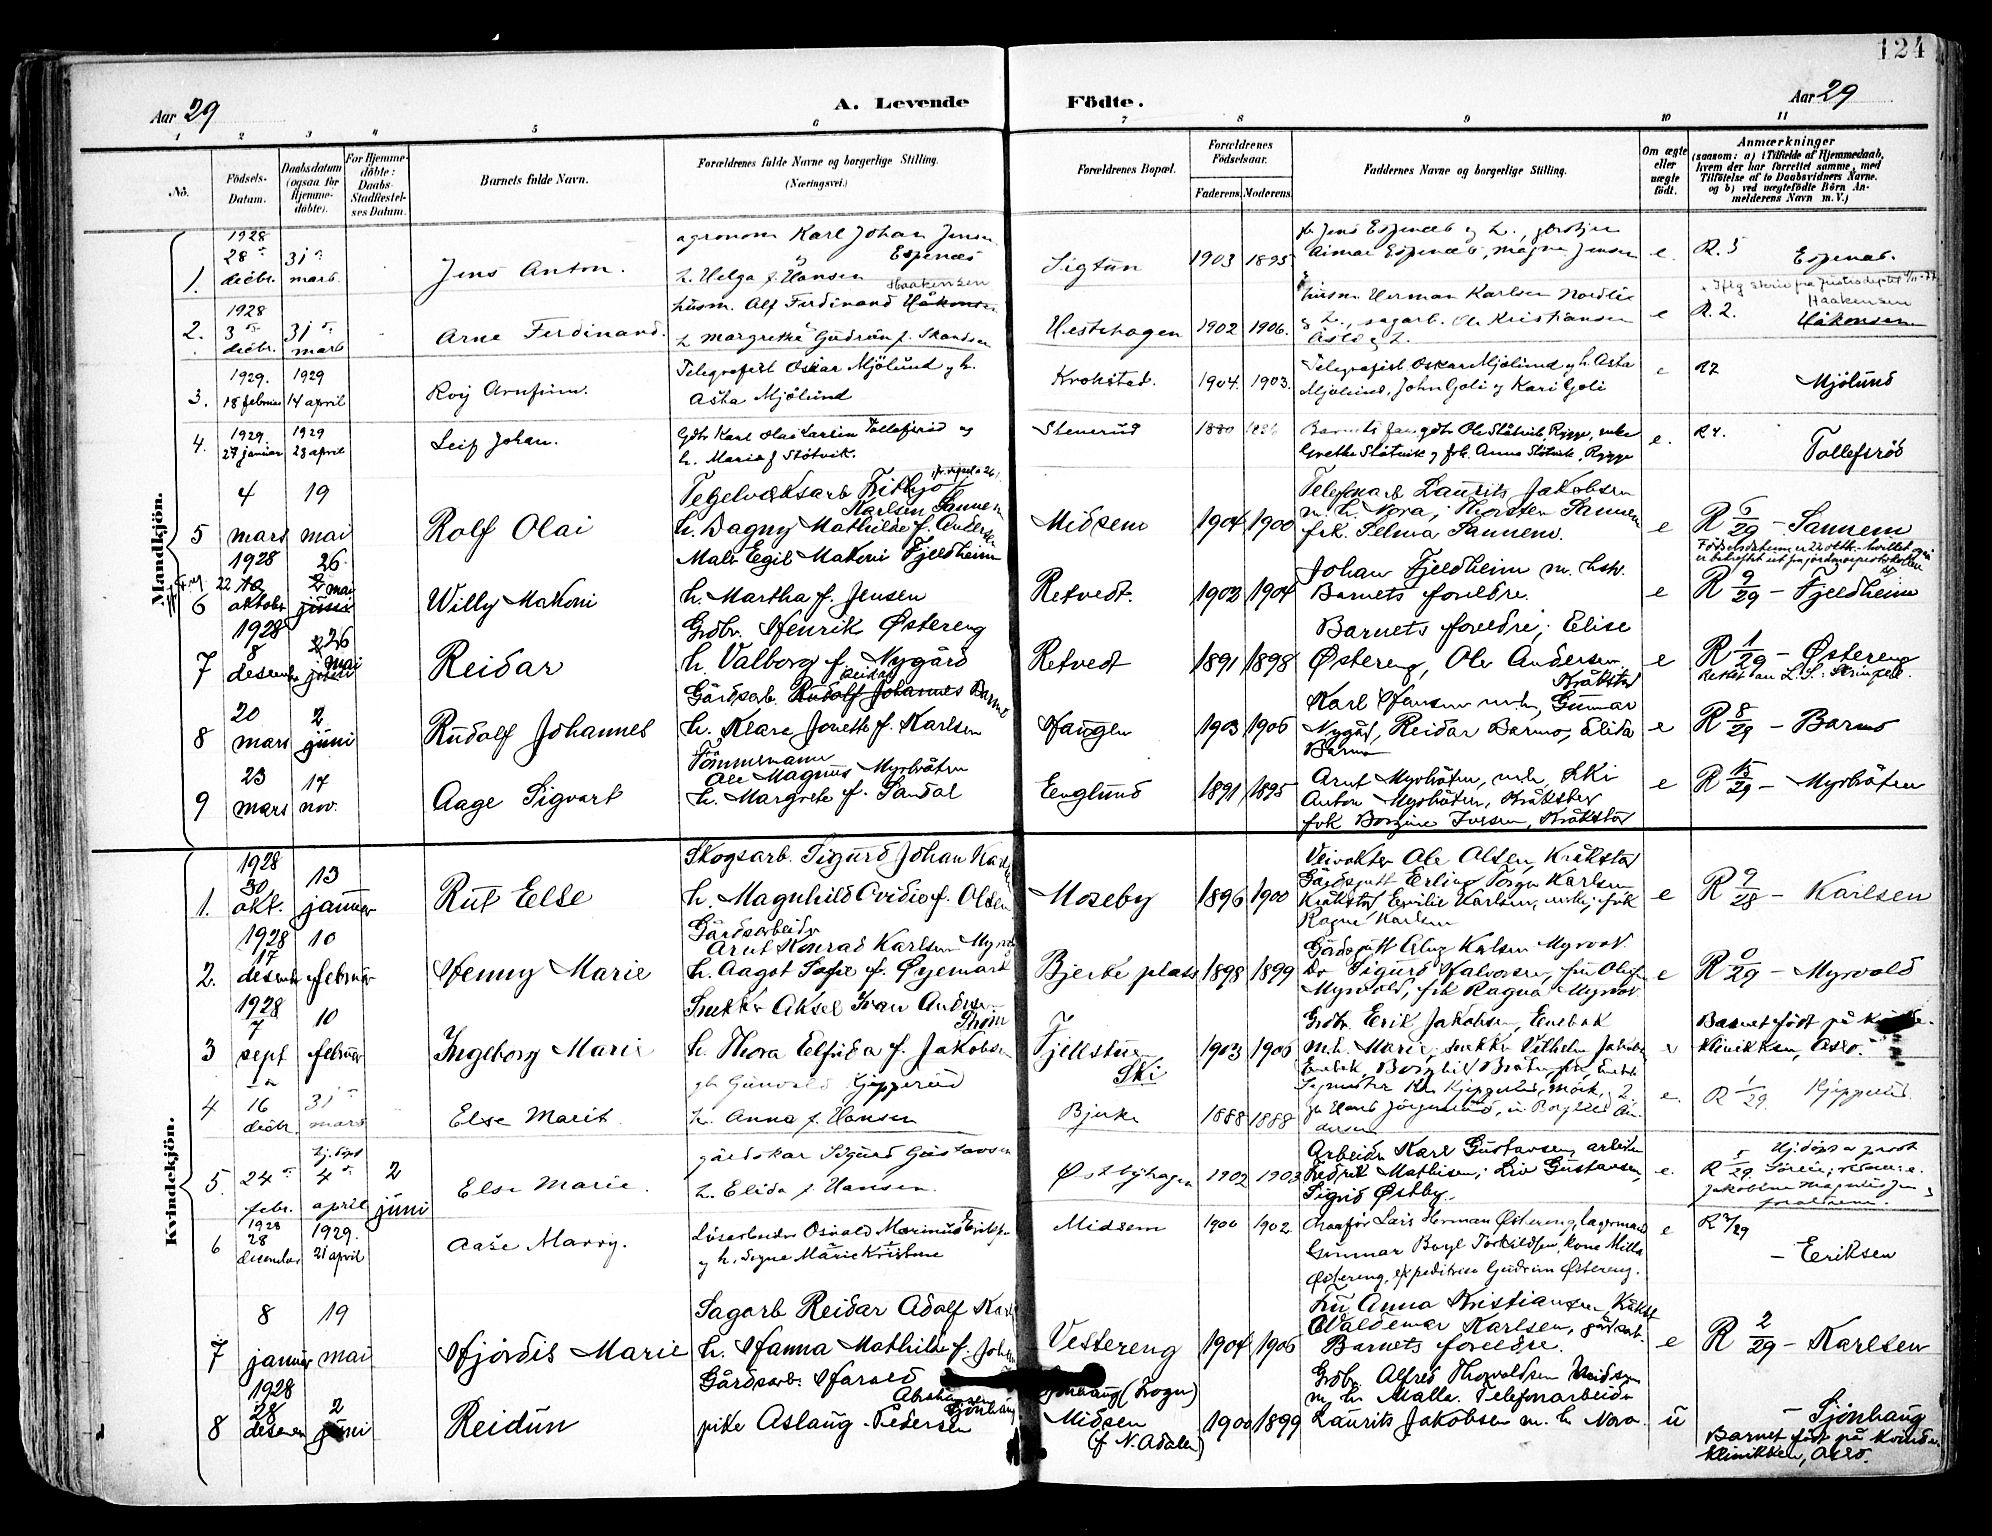 124
Aar 29
A. Levende Födte.
Aar 29
1 2 3 4 5 6 7 8 9 10 11
No.
Födsels-Datum.
Daabsdatum (ogsaa for Hjemme-döbte).
For Hjemme-döbte: Daabs-Stadfæstel-ses Datum.
Barnets fulde Navn.
Forældrenes fulde Navne og borgerlige Stilling.
(Næringsvei.)
Forældrenes Bopæl.
Forældrenes Födselsaar.
Faderens. Moderens.
Faddernes Navne og borgerlige Stilling.
Om ægte eller uægte födt.
Anmærkninger
(saasom: a) i Tilfælde af Hjemmedaab, hvem der har forrettet samme, med Tilföielse af to Daabsvidners Navne, og b) ved uægtefödte Börn An-melderens Navn m. V.)
Mandkjön.
1928
1. 28 decbr. 31 mars Jens Anton.
agronom Karl Johan Jensen Espenæs
h. Helga f. Hansen
Sigtun 1903 1895
fr. Jens Espenæs og h.,
Espenæs, Magna Jensen
e. R. 5 Espenæs.
1928
2. 3 decbr. 31 mars Arne Ferdinand.
Haakensen
husm. Alf Ferdinand Håkonsen
h. Margrethe Gudrun f. Skandsen
Hestehagen 1902 1906.
husm Herman Karlsen Nordlie
g h., sagarb. Ole Kristiansen
e R. 2. Haakensen
Håkonsen.
1929. 1929
3. 18 februar 14 april Roy Arnfinn.
Telegrafist Oskar Mjölund og h.
Asta Mjölund
Krokstad. 1904. 1903.
Telegrafist Oskar Mjölund og h. Asta
Mjölund, John Goli og Kari Goli
e R2 Mjölund
1929. 1929
4. 27 januar 28 april Leif Johan.
Gdbr Karl Olai Larsen Tollefsröd og
h. Maria f Slötvik.
Stenerud 1880
Barnets far, gdbr Ole Slötvik, Rygge, enke
Grethe Slötvik og frk. Anna Slötvik, Rygge
e. R 4. Tollefsröd
4 19
5 mars mai Rolf Olai
Tegelverksarb Fritjof
Karlsen Sannem
h. Dagny Mathilde f. Andersen
Midsem 1904 1900
Telefonarb Laurits Jakobsen
m. h. Nora; Thorsten Sannem
frk. Selma Sannem.
e R 6/29 - Sannem
Födselsdatum er 22 oktbr.
1928 26
6 22 oktober mai Willy Makoni
Maler Egil Makoni Fjeldheim
h. Martha f. Jensen
Retvedt. 1903 1904
Johan Fjeldheim m. hstr.
Barnets foreldre.
e R 9/29 - Fjeldheim
1928
8 26
7 desember mai Reidar
Grdbr. Henrik Østereng
h. Valborg f. Nygård
Retvedt 1891 1898
Barnets foreldre; Elise
Østereng, Ole Andersen, Kråkstad
e R 1/29 - Østereng
20 2
8 mars juni Rudolf Johannes
Reidar
Gårdsarb. Rudolf Johannes Barmo
h. Klara Jonette f. Karlsen
Haugen 1903 1906
Karl Hansen m. h., Gunnar
Nygård, Reidar Barmo, Elida
Barmo
e R 8/29 - Barmo
23 17
9 mars nov. Aage Sigvart
Tömmermann
Ole Magnus Myrbråten
h. Margrete f. Sandal
Englund 1891 1895
Arnt Myrbråten, m. h., Ski
Anton Myrbråten, Kråkstad
frk Borgine Iversen, Kråkstad
e R 15/29 - Myrbråten
Kvindekjön.
1928
30 13
1. okt. januar Rut Else
Skogsarb. Sigurd Johan Karlsen
h. Magnhild Ovidie f. Olsen
Moseby 1896 1900
Veivokter Ole Olsen, Kråkstad
Gårdsgutt Erling Torger Karlsen
Kråkstad Emilie Karlsen, frk
Ragna Karlsen
e R 9/28 - Karlsen
1928
17 10
2. desember februar Henny Marie
Gårdsarbeider
Arnt Konrad Karlsen Myrvold
h. Aagot Sofie f. Øyemark
Bjerke plass 1898 1899
Gårdsgutt Alug Karlsen Myrvold.
Do Sigurd Halvorsen, fru Oluf
Myrvold, frk Ragna Myrvold
e R 0/29 - Myrvold
1928
7 10
3 sept februar Ingeborg Marie
Snekker Aksel Ivar Andersen
Thom
h. Thora Elfrida f. Jakobsen
Fjellstuen
Ski
1903 1906
Grdbr. Erik Jakobsen, Enebak
m. h. Marie; snekker Vilhelm Jakobsen
Enebak, Borghild Bråten, frk, Enebak
e Barnet födt på
klinikken, Oslo.
4 16 decbr. 31 mars Else Marit
gbr Gunvald Kjepperud
h. Anna f. Hansen
Bjerke 1888 1888
e. R 1/29. Kjepperud.
hj.döpt
5. 24 febr. 4 april 2 juni Else Marie.
gårdskar Sigurd Gustavsen
h. Elida f. Hansen.
Østbyhagen 1902 1903
Arbeider Karl Gustavsen, arbeider
Fredrik Mathisen; Liv Gustavsen,
Sigrid Østby.
e. R 5/29
1928 1929.
6 28 desember 21 april Aase Marry.
Lösarbeider Osvald Marinius Eriksen
og h. Signe Marie Kristine
Midsem 1900 1902
Chaufför Lars Herman Østereng, lagermand
Gunnar Boyl Torkildsen, kone Milla
Østereng, expeditrise Gudrun Østereng.
e R 2/29
- Eriksen
8 19
7 januar mai Hjördis Marie
Sagarb Reidar Adolf Karlsen
h. Hanna Mathilde f. Johansen
Vestereng 1904 1906
Fru Anna Kristiansen, Kråkst
Valdemar Karlsen, gårdsarb.
Barnets foreldre.
e R 2/29 - Karlsen
1928
28 2
8 desember juni Reidun
Gårdsarb. Harald
Abrahamsen Sjönhaug
pike Aslaug Pedersen
Sjönhaug (Trogn)
Midsem
(f N. Adalen)
1900 1899
Grdbr. Alfred Thorvaldsen Midsem
m. h. Malla. Telefonarbeider
Laurits Jakobsen m. h. Nora.
u - Sjönhaug
Barnet födt på Kvinde-
klinikken, Oslo.